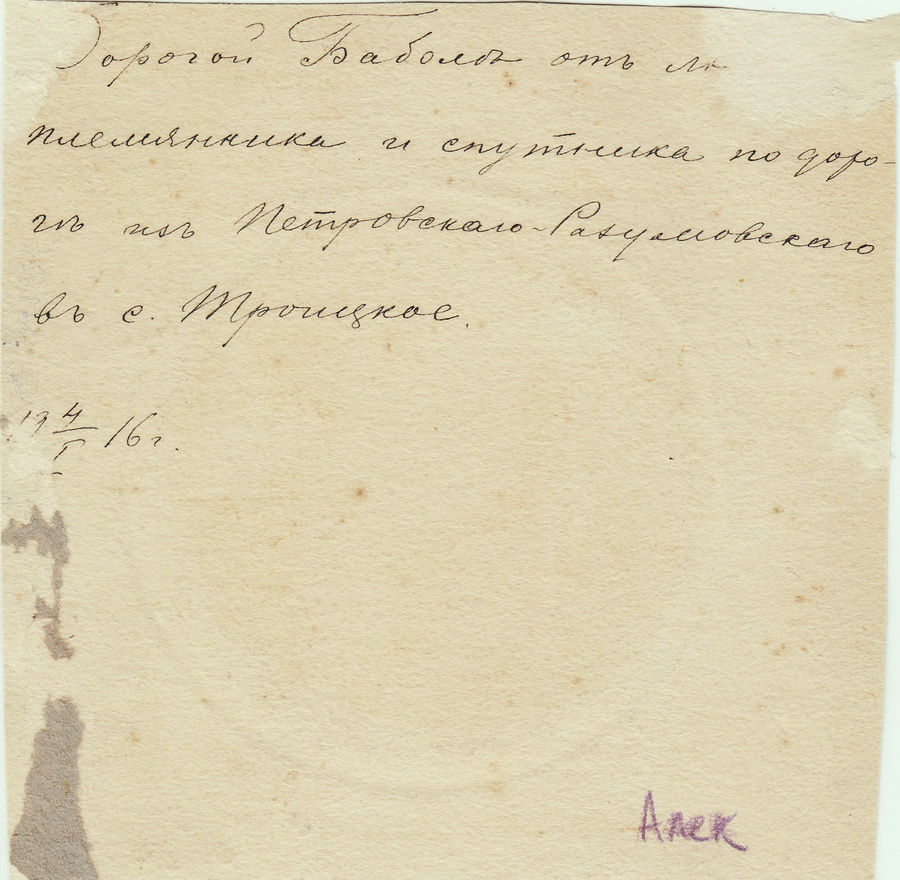 Дорогой Бабольѣ отъ
племянника и спутника по доро-
гѣ изъ Петровскаго-Разумовскаго
въ с. Троицкое.
19 4/I 16 г.
Алек